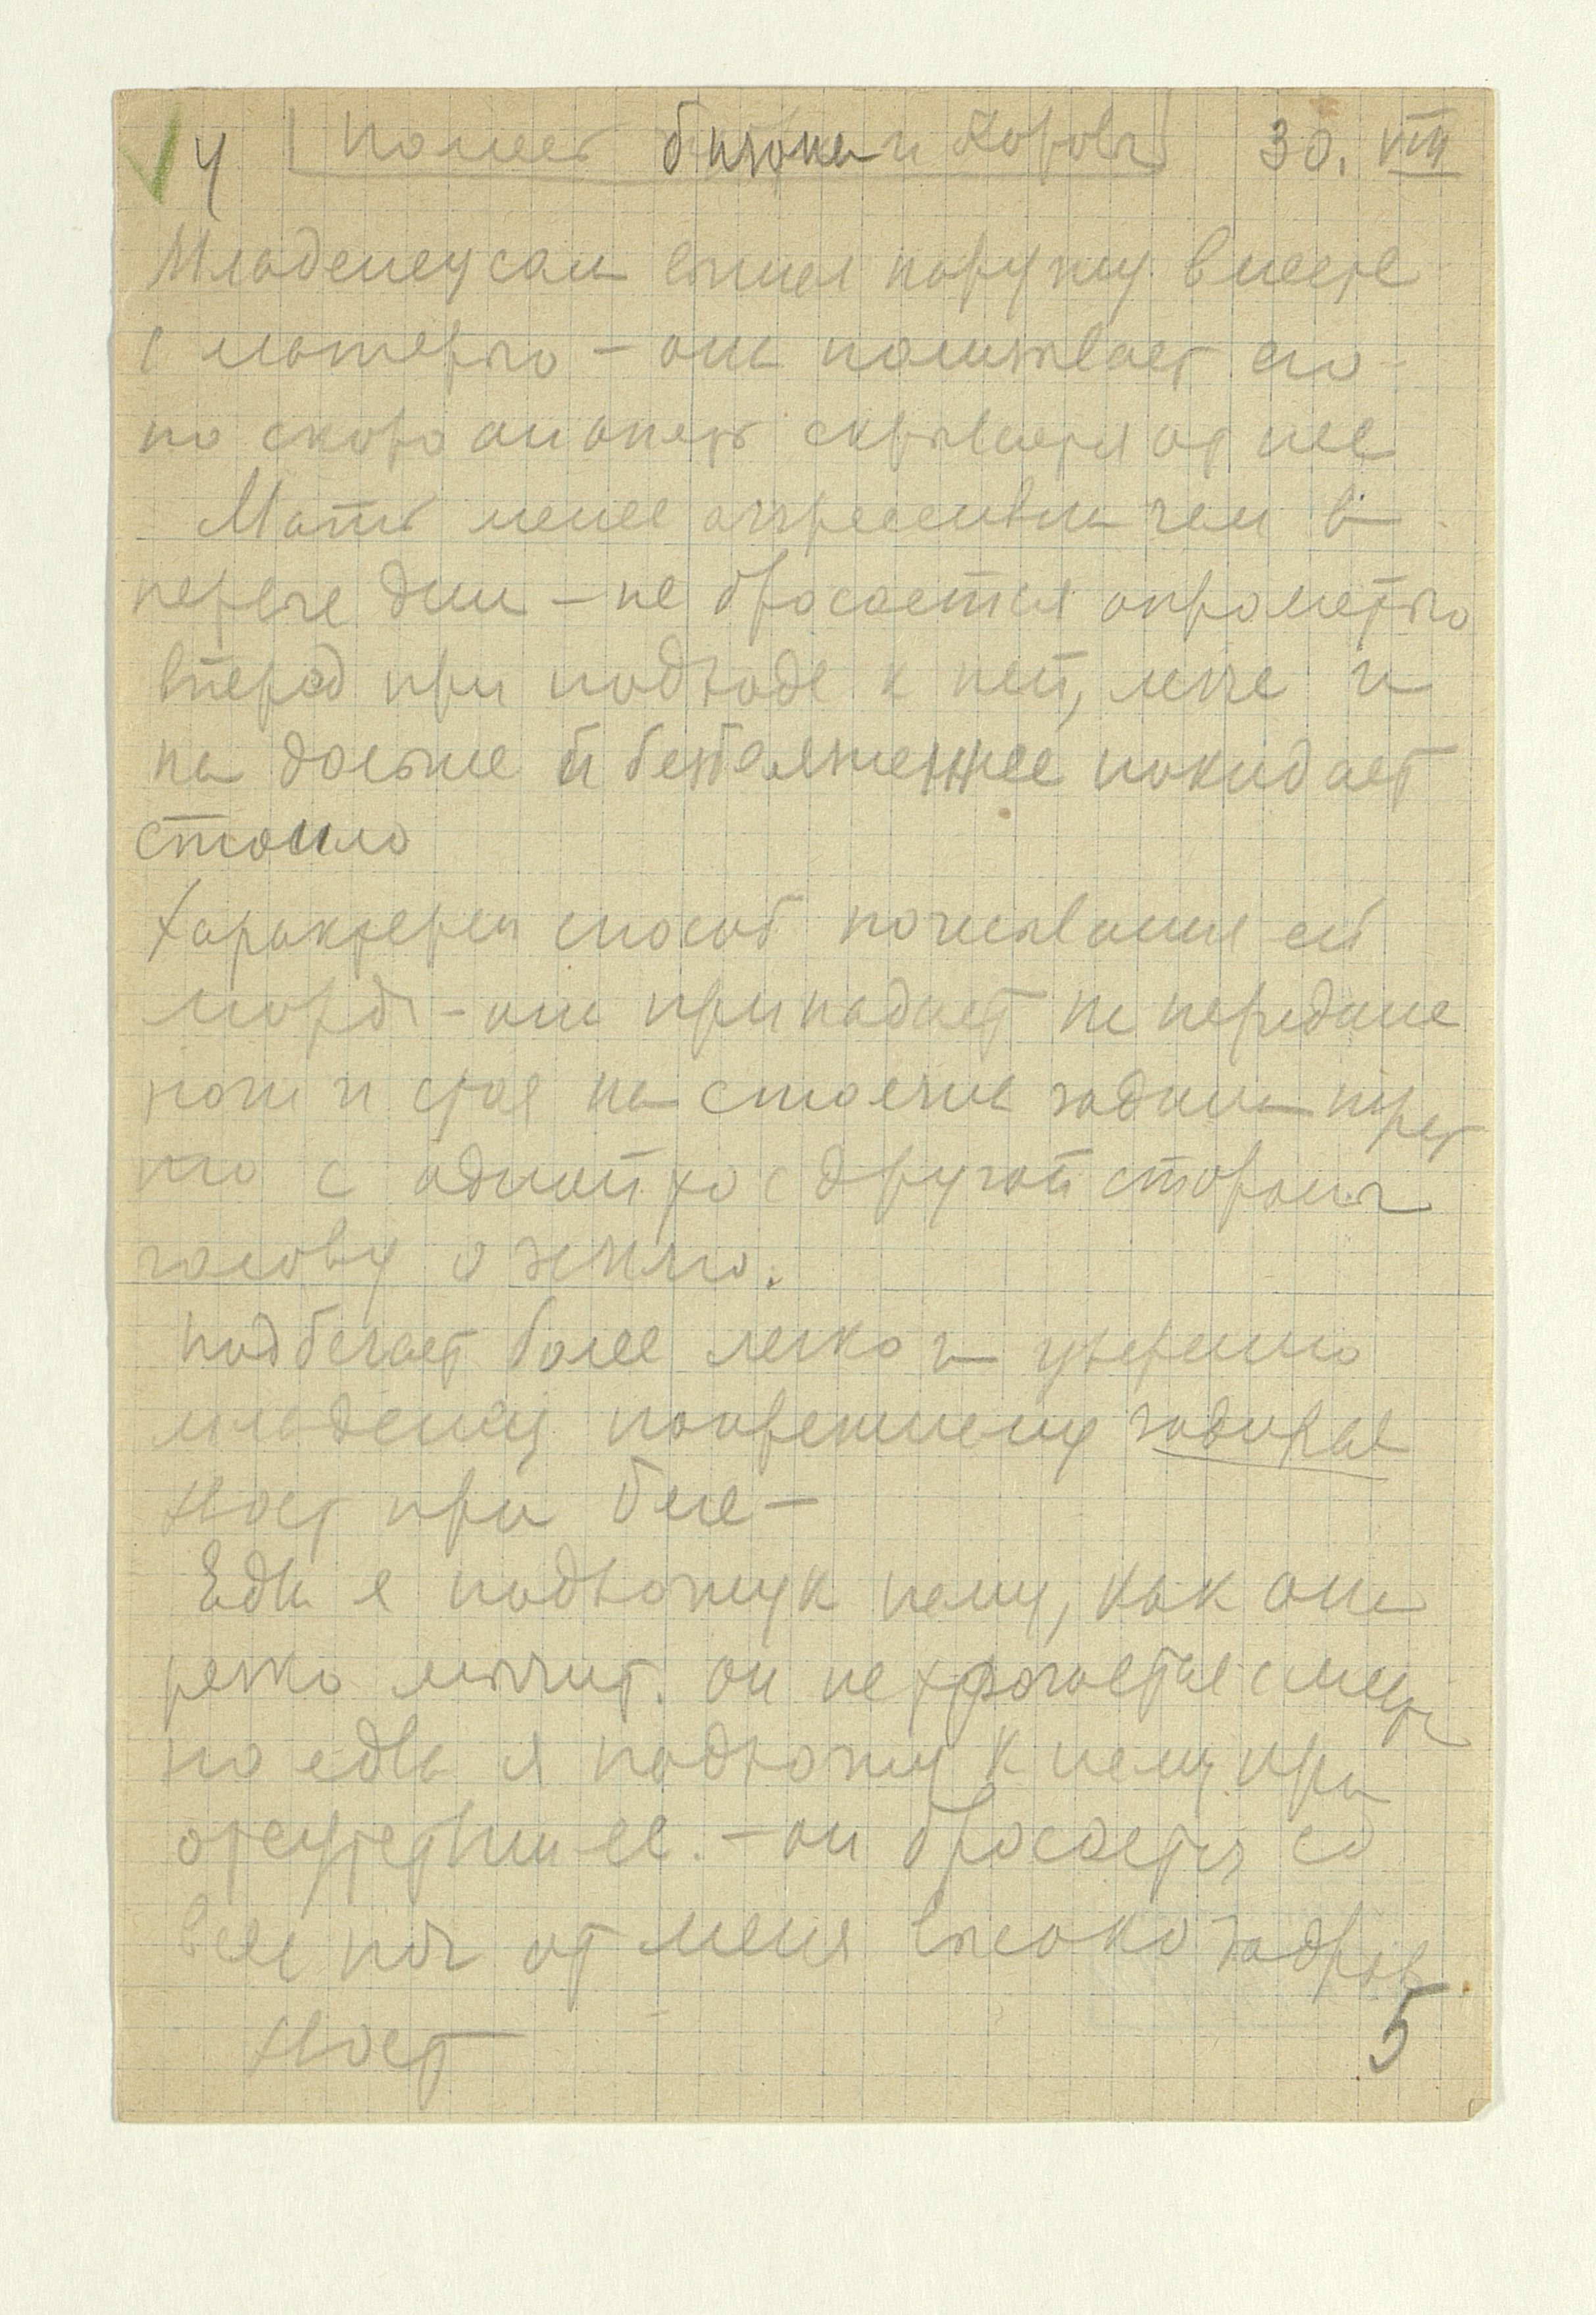 4 Помесь бизона и коровы 30. VIII
Младенец сам вышел наружу вместе
с матерью – она полизывает его
но скоро он опять скрывается от нее
Мать менее агрессивна чем в
первые дни – не бросается опрометью
вперед при подходе к ней, легче и
на дольше и безбоязненнее покидает
стойло
Характерен способ почесывания ей
морды – она припадает на передние
ноги и стоя на стоячих задних трет
то с одной то с другой стороны
голову о землю.
подбегает более легко и уверенно
младенец попрежнему задирает
хвост при беге –
Едва я подхожу к нему, как она
резко мычит. он не
но едва я подхожу к нему при
отсутствии ее. – он бросается со
всех ног от меня высоко задрав
хвост
5